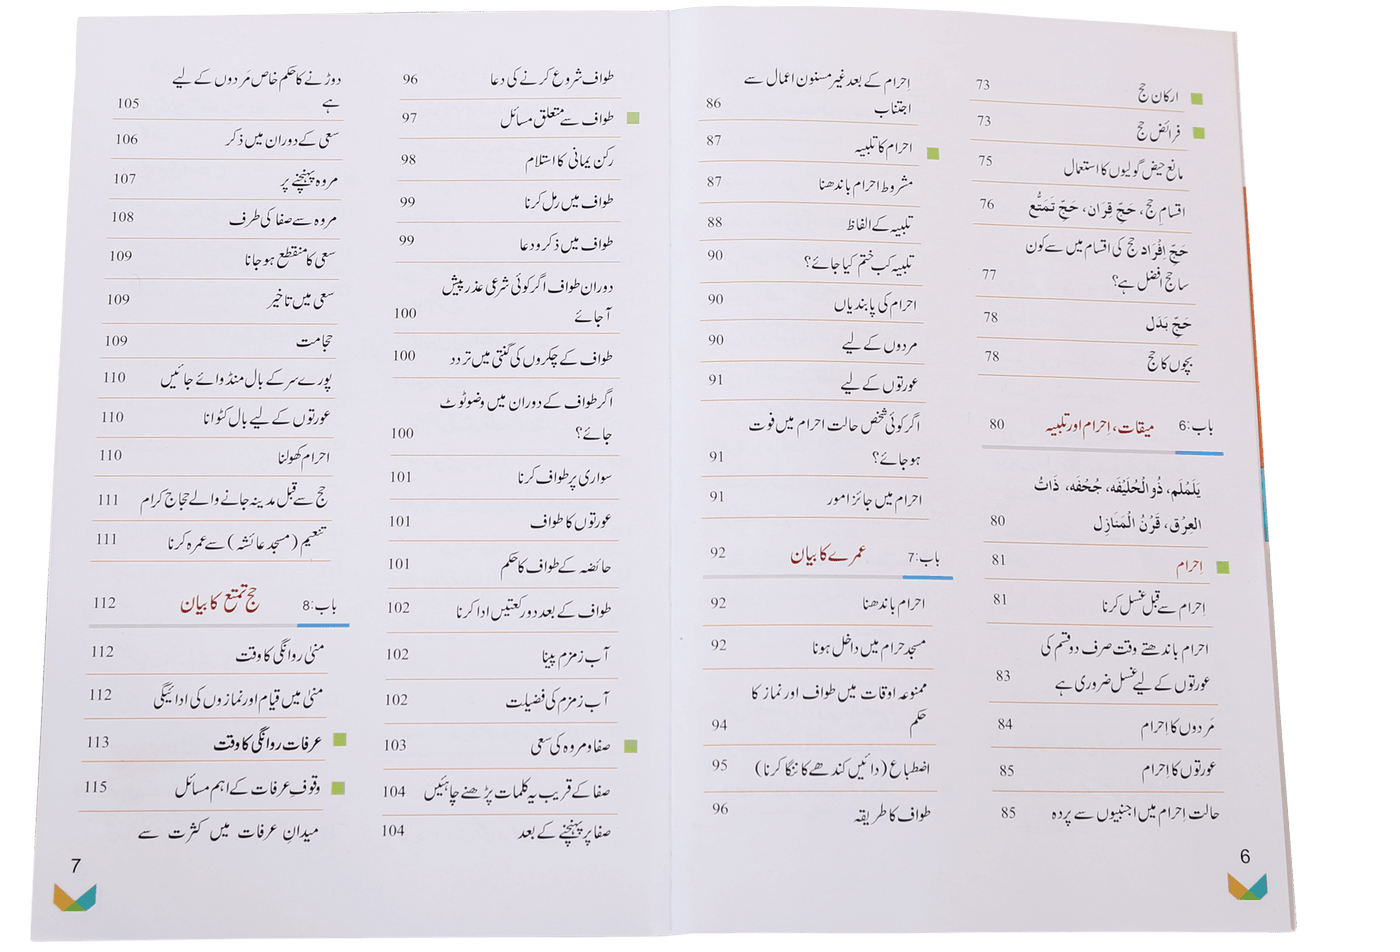 ارکان حج 73
فرائض حج 73
مانع حیض گولیوں کا استعمال 75
اقسام حج، حَجِّ قِرَان، حَجِّ تَمَتُّع 76
حَجِّ اِفْرَاد حج کی اقسام میں سے کون
سا حج افضل ہے؟ 77
حَجِّ بَدَل 78
بچوں کا حج 78
باب:6 میقات، اِحرام اور تلبیہ 80
یَلَمْلَم، ذُو الْحُلَیْفَه، جُحْفَه، ذَاتُ
العِرْق، قَرْنُ الْمَنَازِل 80
اِحرام 81
اِحرام سے قبل غسل کرنا 81
احرام باندھتے وقت صرف دو قسم کی
عورتوں کے لیے غسل ضروری ہے 83
مَردوں کا اِحرام 84
عورتوں کا اِحرام 85
حالت اِحرام میں اجنبیوں سے پردہ 85
6
اِحرام کے بعد غیر مسنون اعمال سے
اجتناب 86
احرام کا تلبیہ 87
مشروط احرام باندھنا 87
تلبیہ کے الفاظ 88
تلبیہ کب ختم کیا جائے؟ 90
احرام کی پابندیاں 90
مردوں کے لیے 90
عورتوں کے لیے 91
اگر کوئی شخص حالت احرام میں فوت
ہو جائے؟ 91
احرام میں جائز امور 91
باب:7 عمرے کا بیان 92
احرام باندھنا 92
مسجد حرام میں داخل ہونا 92
ممنوعہ اوقات میں طواف اور نماز کا
حکم 94
اضطباع (دائیں کندھے کا ننگا کرنا) 95
طواف کا طریقہ 96
طواف شروع کرنے کی دعا 96
طواف سے متعلق مسائل 97
رکن یمانی کا استلام 98
طواف میں رمل کرنا 99
طواف میں ذکر و دعا 99
دوران طواف اگر کوئی شرعی عذر پیش
آجائے 100
طواف کے چکروں کی گنتی میں تردد 100
اگر طواف کے دوران میں وضو ٹوٹ
جائے؟ 100
سواری پر طواف کرنا 101
عورتوں کا طواف 101
حائضہ کے طواف کا حکم 101
طواف کے بعد دو رکعتیں ادا کرنا 102
آب زمزم پینا 102
آب زمزم کی فضیلت 102
صفا و مروہ کی سعی 103
صفا کے قریب یہ کلمات پڑھنے چاہئیں 104
صفا پر پہنچنے کے بعد 104
دوڑنے کا حکم خاص مَردوں کے لیے
ہے 105
سعی کے دوران میں ذکر 106
مروہ پہنچنے پر 107
مروہ سے صفا کی طرف 108
سعی کا منقطع ہو جانا 109
سعی میں تاخیر 109
حجامت 109
پورے سر کے بال منڈوائے جائیں 110
عورتوں کے لیے بال کٹوانا 110
احرام کھولنا 110
حج سے قبل مدینہ جانے والے حجاج کرام 111
تنعیم (مسجد عائشہ) سے عمرہ کرنا 111
باب:8 حج تمتع کا بیان 112
منیٰ روانگی کا وقت 112
منیٰ میں قیام اور نمازوں کی ادائیگی 112
عرفات روانگی کا وقت 113
وقوفِ عرفات کے اہم مسائل 115
میدانِ عرفات میں کثرت سے
7